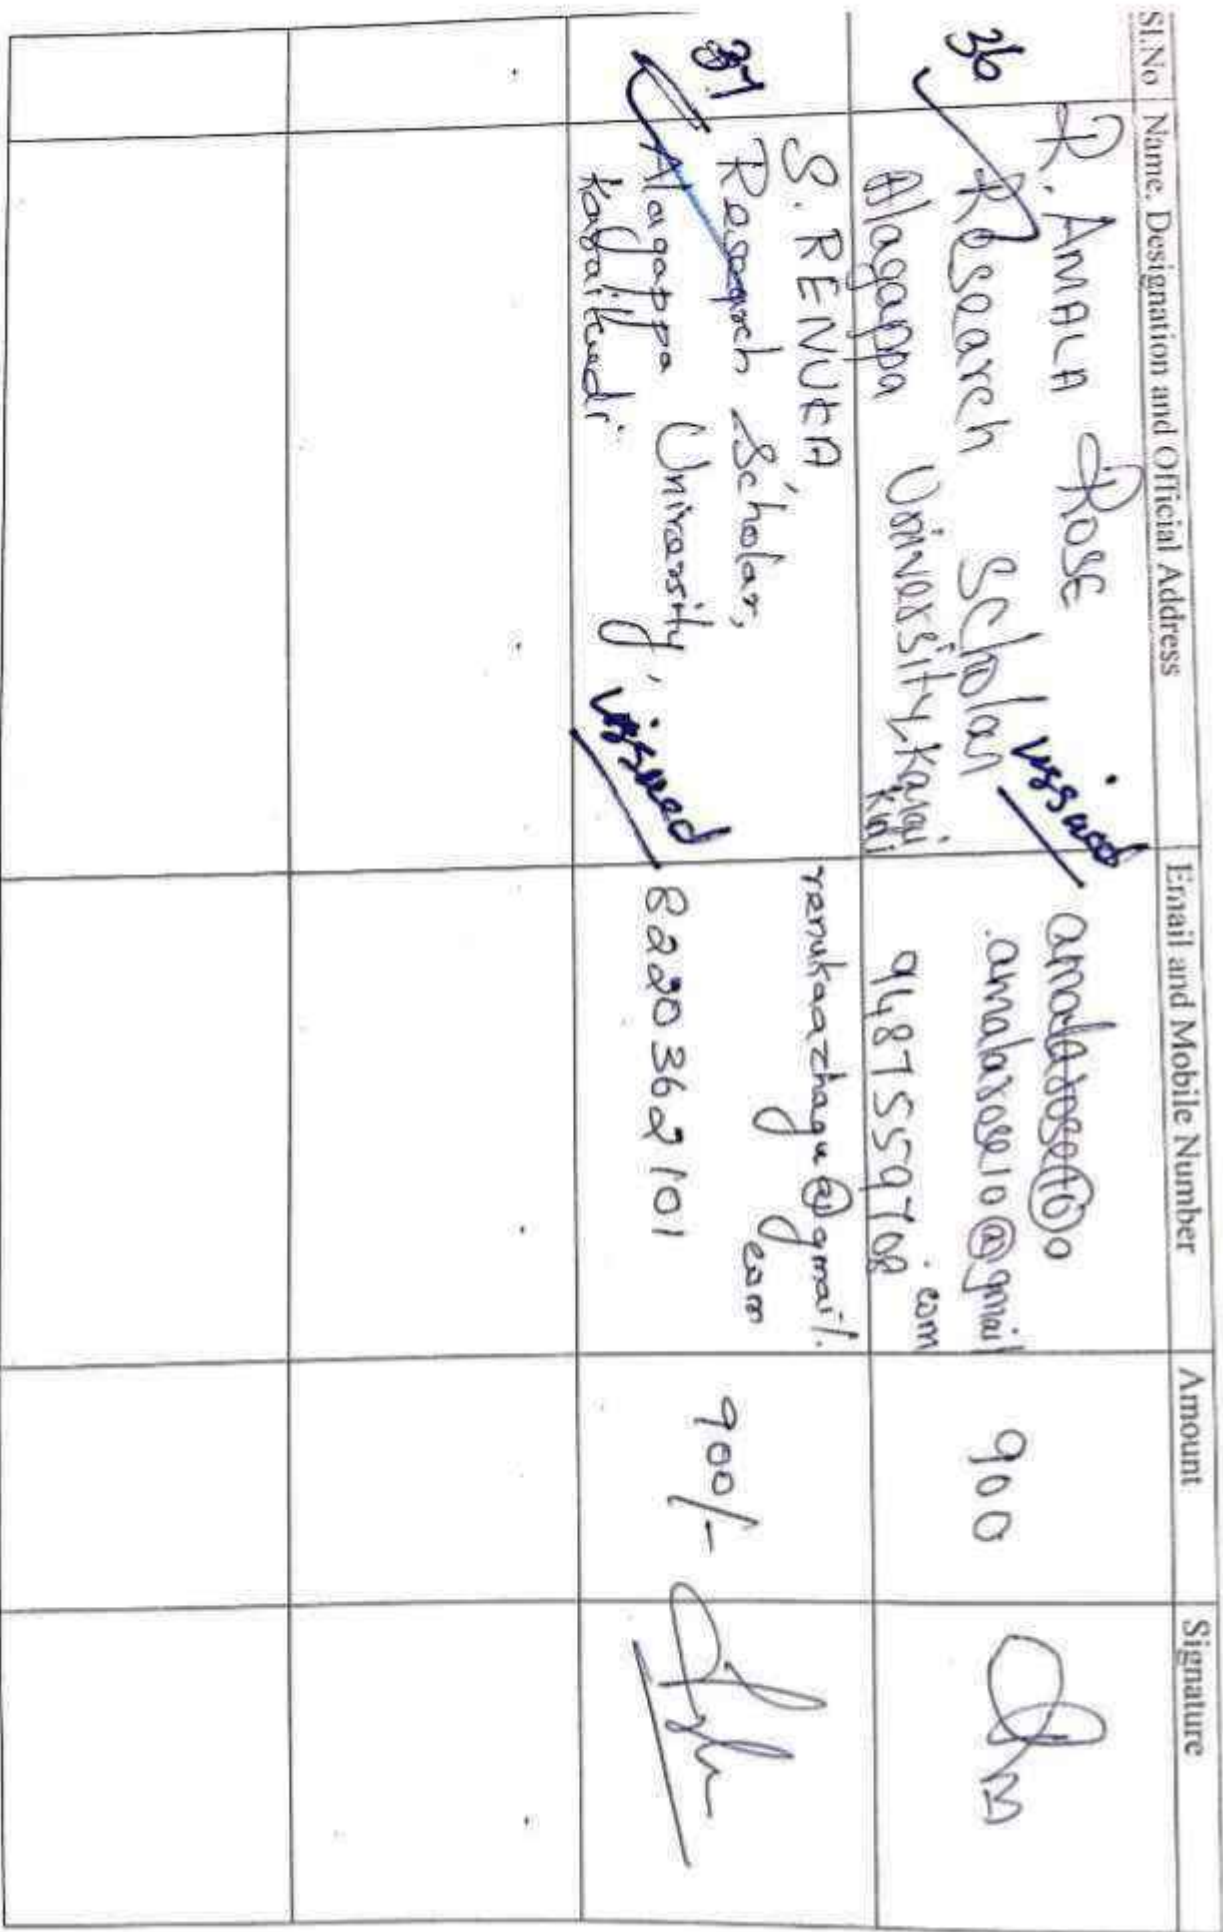 Sl.No Name, Designation and Official Address Email and Mobile Number Amount Signature
36 R. AMALA ROSE
Research Scholar
Alagappa University, Karai
kudi
issued
amalarose10@gmail
.com
9487559708
900
37 S. RENUKA,
Research Scholar,
Alagappa University,
Karaikudi
issued
renukaazhagu@gmail.
com
8220362101
900/-